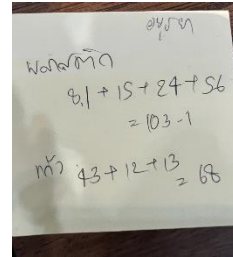 อนุรษา
พลาสติก
8.1 + 15 + 24 + 56
= 103-1
แก้ว 43 + 12 + 13
= 68